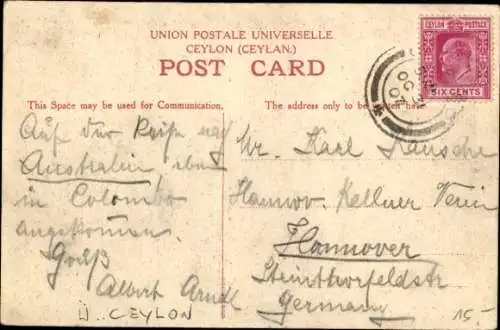 UNION POSTALE UNIVERSELLE
CEYLON (CEYLAN.)
POST CARD
CEYLON POSTAGE
SIX CENTS
This Space may be used for Communication.
The address only to be written here
Auf der Reise nach
Australien, eben
in Colombo
angekommen.
Gruß
Albert Arndt
Mr. Karl
Hannov. Kellner Verein
Hannover
Steinthorfeldstr
Germany
Ü. CEYLON
15-